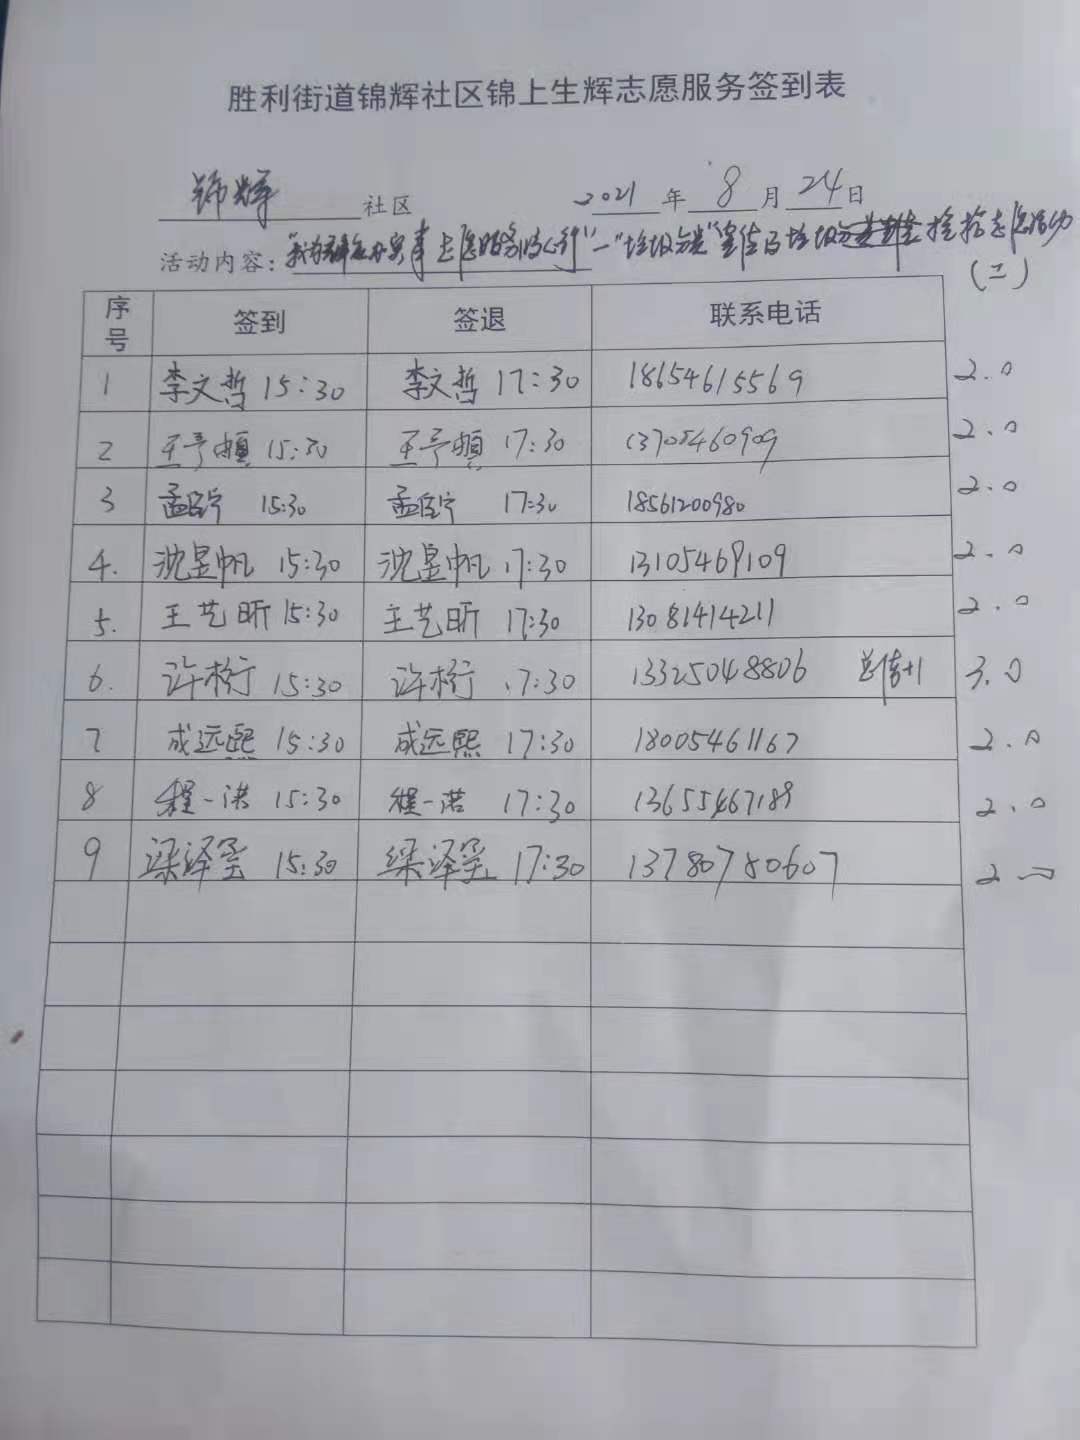 胜利街道锦辉社区锦上生辉志愿服务签到表
锦辉 社区 2021 年 8 月 24 日
活动内容："我为群众办实事 志愿服务暖心行"一"垃圾分类"宣传及垃圾 捡拾志愿活动
(二)
序号 签到 签退 联系电话
1 李文哲 15:30 李文哲 17:30 18654615569 2.0
2 王予頔 15:30 王予頔 17:30 13705460909 2.0
3 孟臣宁 15:30 孟臣宁 17:30 18561200980 2.0
4. 沈昱帆 15:30 沈昱帆 17:30 13105469109 2.0
5. 王艺昕 15:30 王艺昕 17:30 13081414211 2.0
6. 许桁 15:30 许桁 17:30 13325048806 +1 3.0
7 成远熙 15:30 成远熙 17:30 18005461167 2.0
8 程一诺 15:30 程一诺 17:30 13655467189 2.0
9 梁泽 15:30 梁泽 17:30 13780780607 2.0